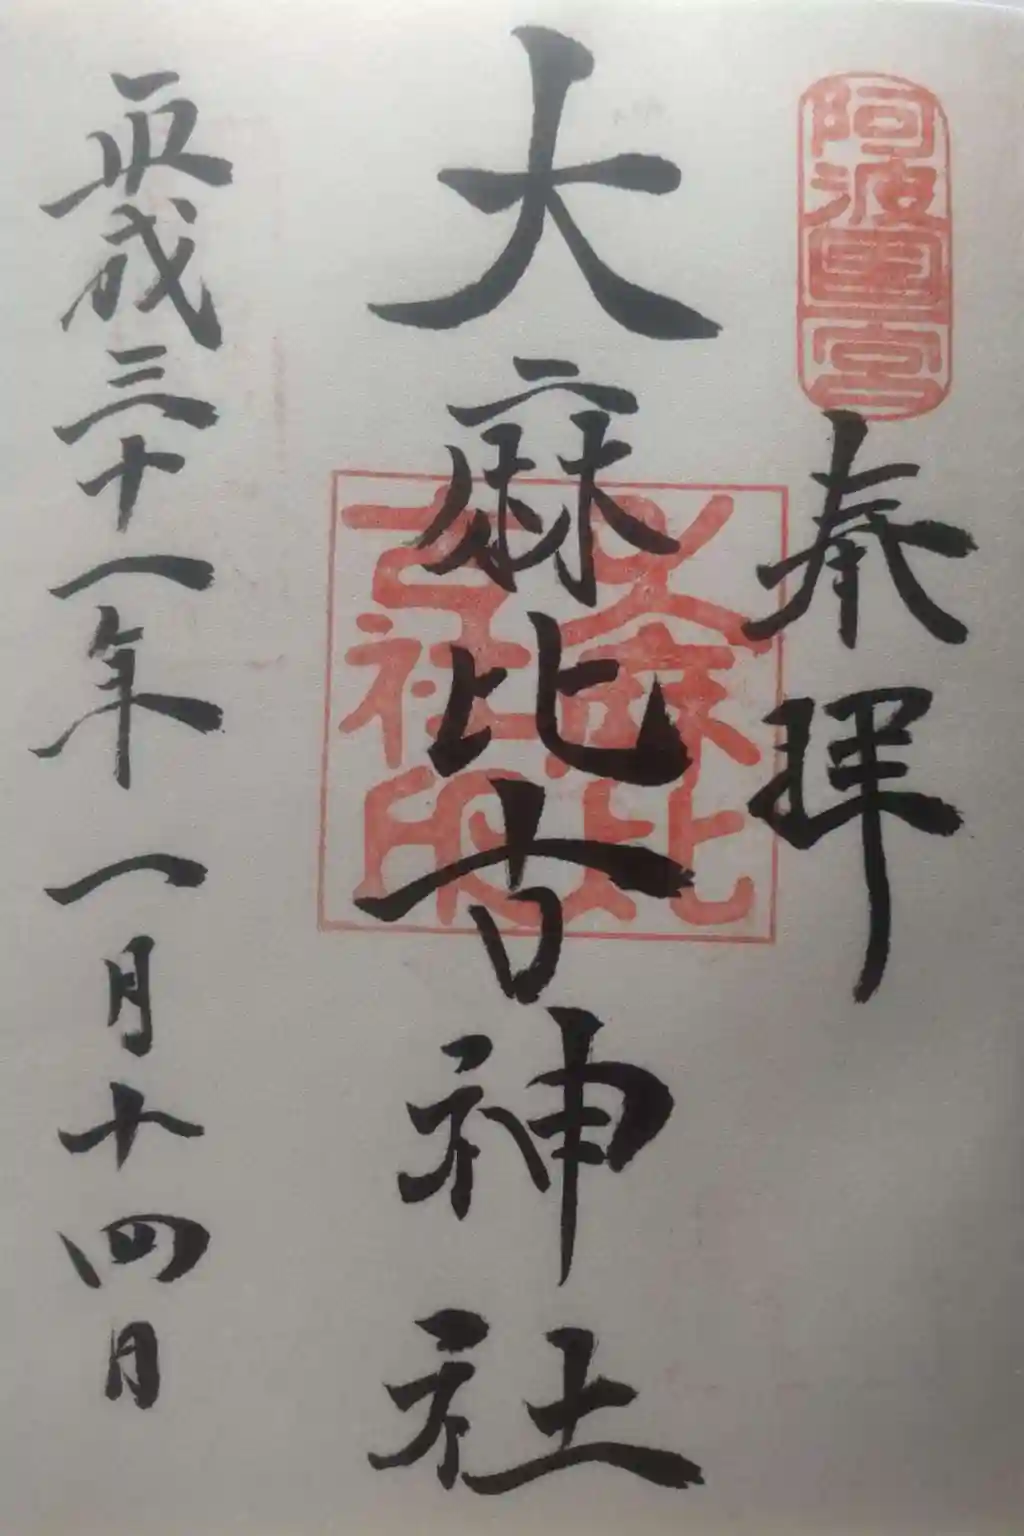 阿波国一宮
奉拝
大麻比古神社
大麻比古社印
平成三十一年一月十四日